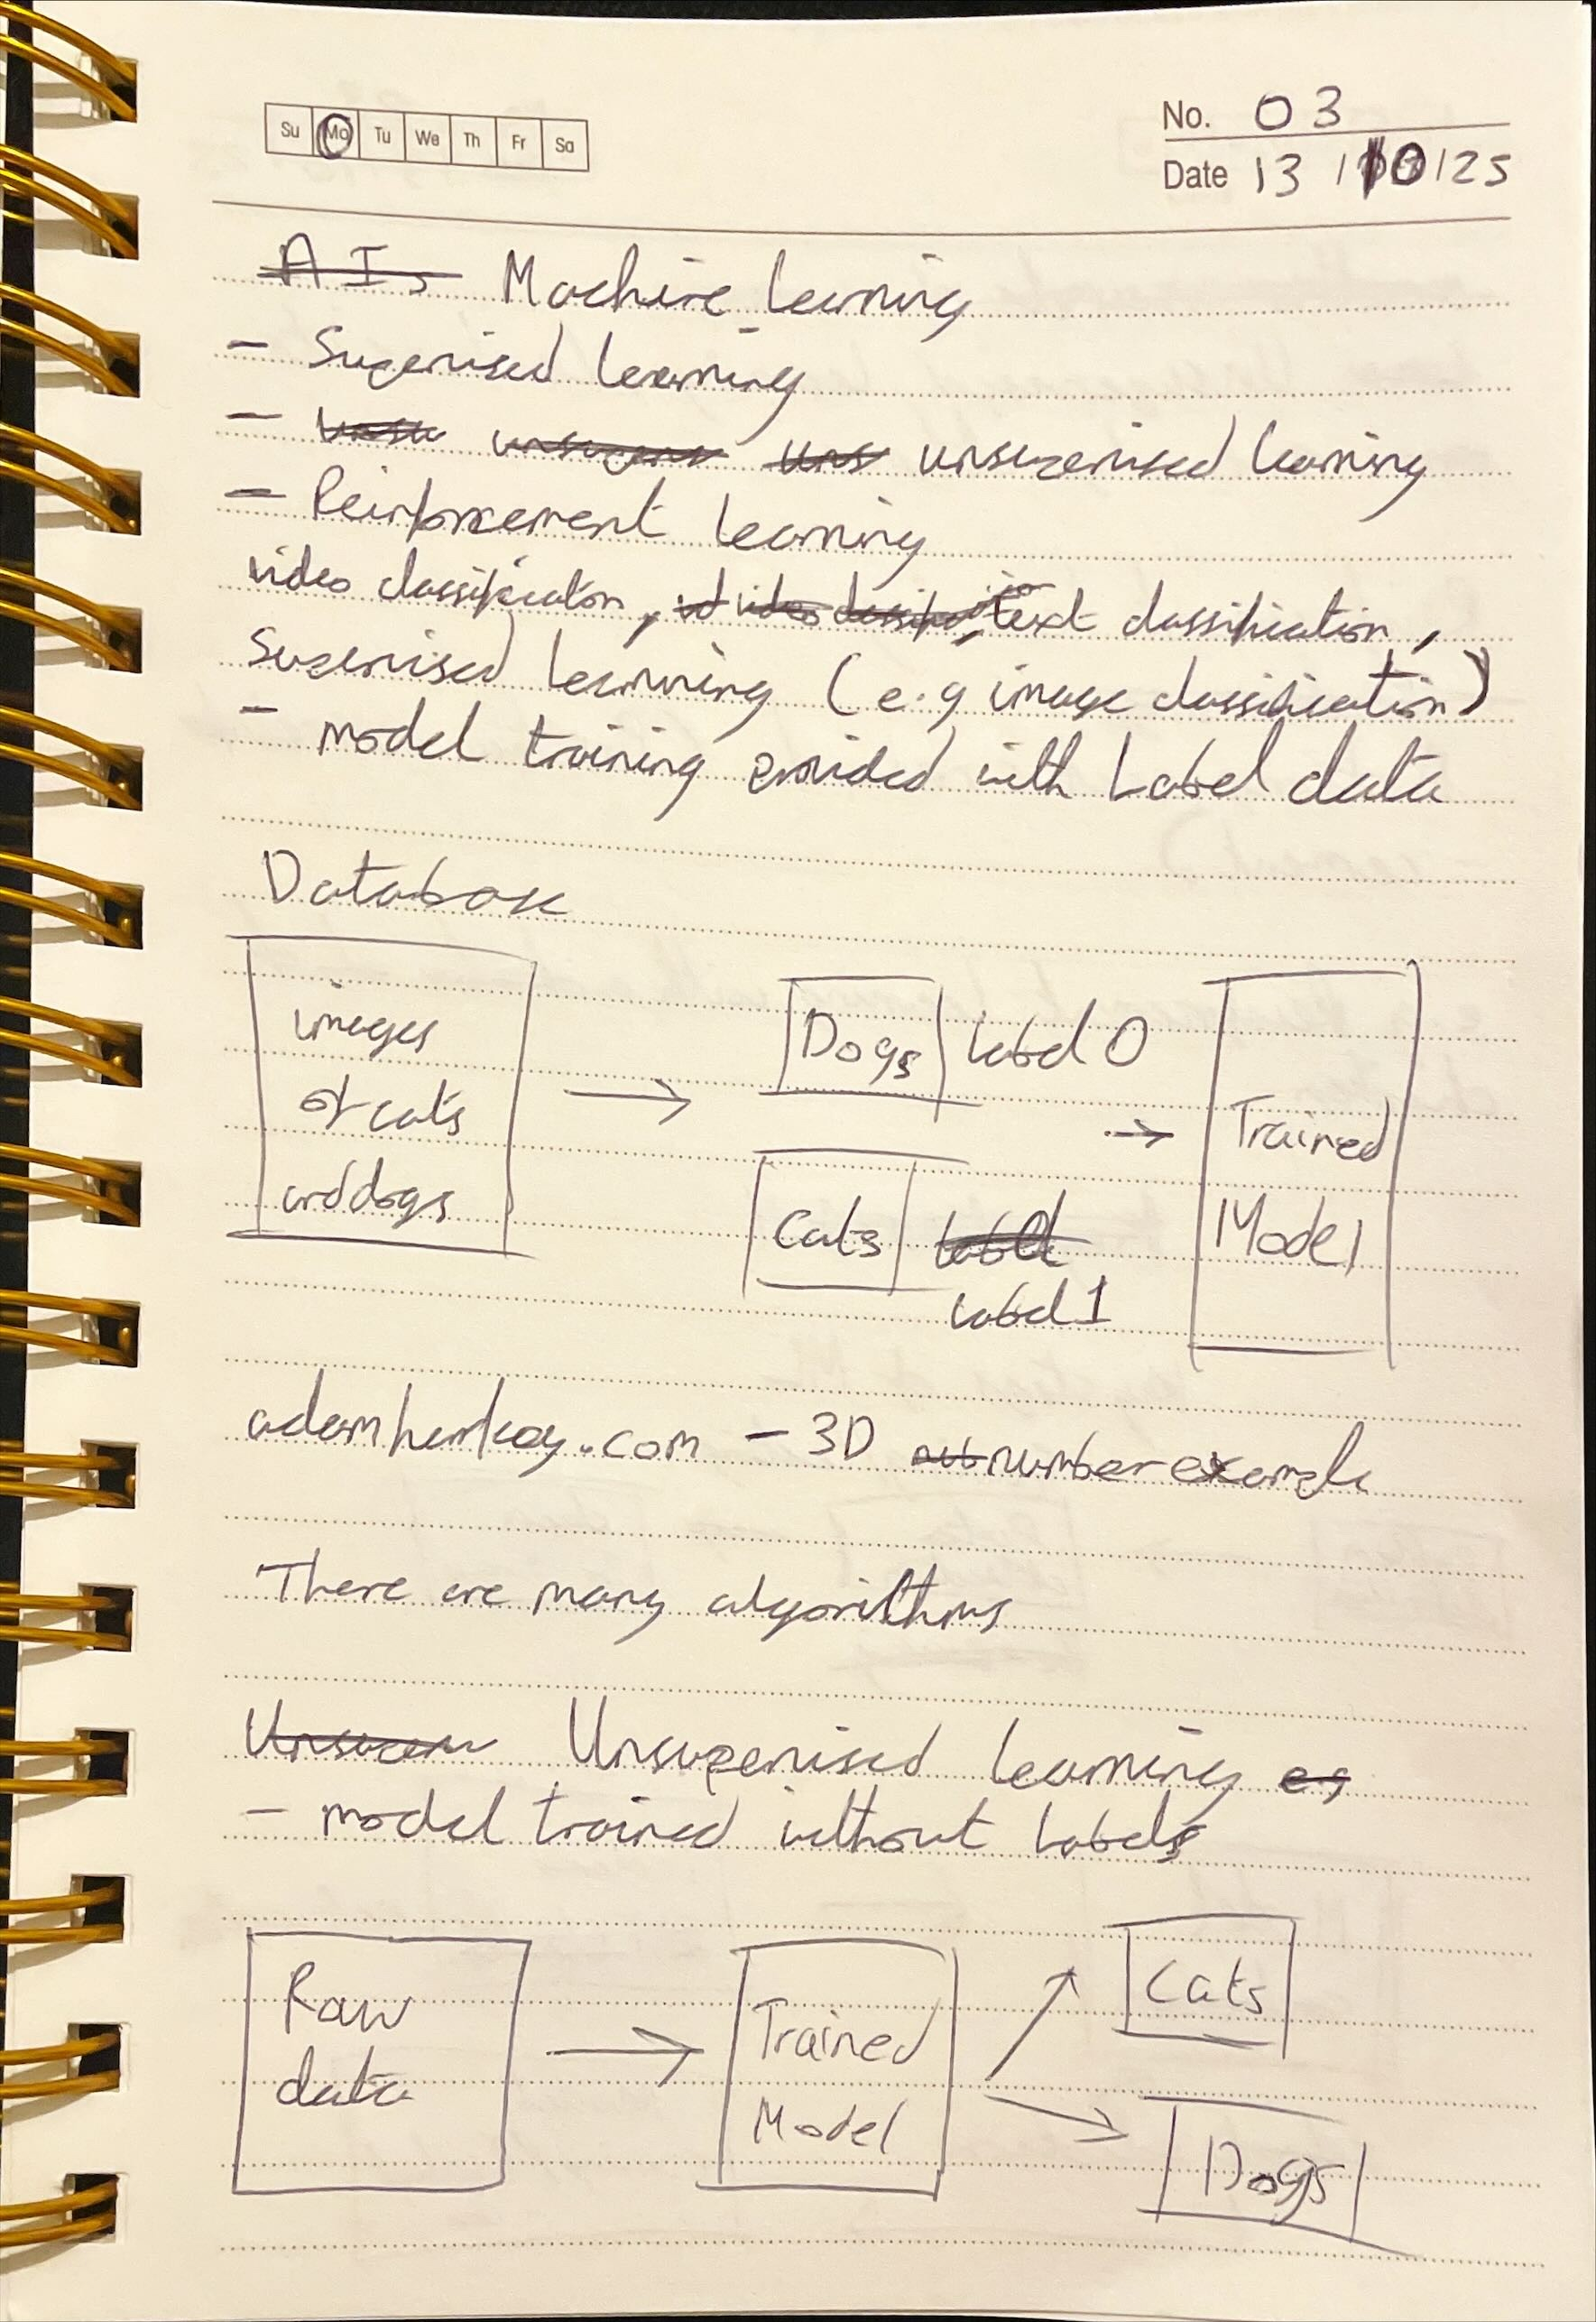 Su Mo Tu We Th Fr Sa
No. 03
Date 13/10/25
AI Machine learning
- Supervised learning
- unsupervised learning
- Reinforcement learning
video classification, text classification,
Supervised learning (e.g image classification)
- model training provided with Label data
Database
images
of cats
and dogs
Dogs label 0
Cats
label 1
Trained
Model
adamharley.com - 3D number example
There are many algorithms
Unsuperv Unsupervised learning eg
- model trained without labels
Raw
data
Trained
Model
Cats
Dogs